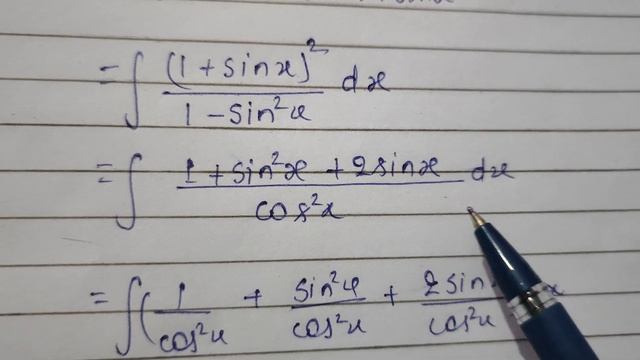 = ∫ (1 + sin x)² / 1 − sin²x dx
= ∫ 1 + sin²x + 2 sin x / cos²x dx
= ∫ ( 1 / cos²x + sin²x / cos²x + 2 sin / cos²x